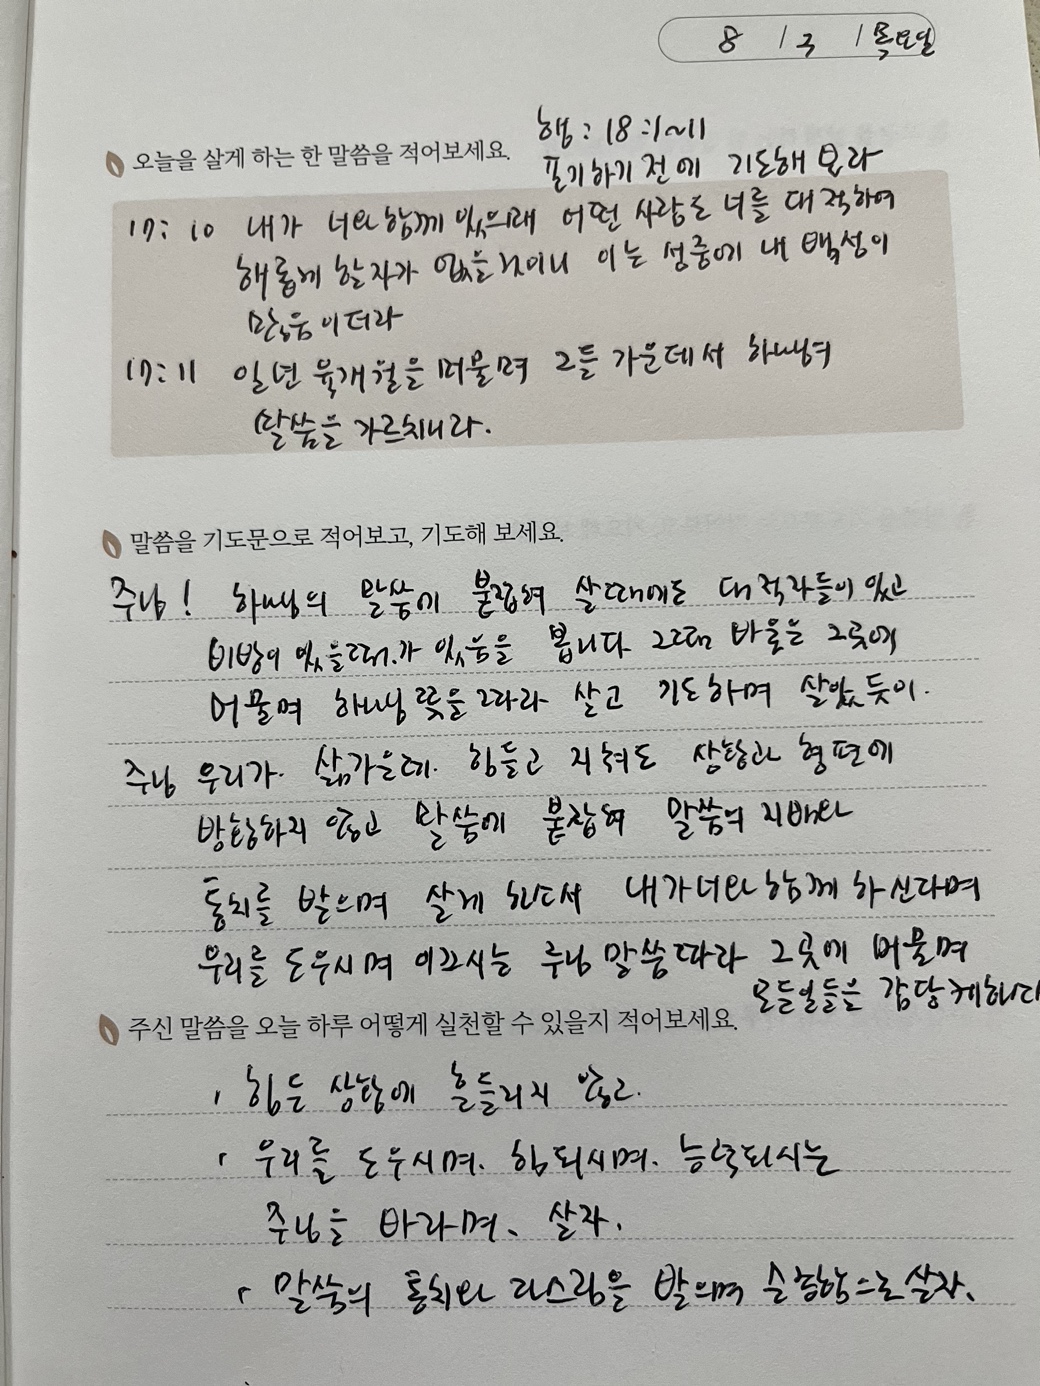 8 / 3 / 목요일
행: 18:1~11
오늘을 살게 하는 한 말씀을 적어보세요.
필기하기 전에 기도해 보라
17: 10 내가 너와 함께 있으매 어떤 사람도 너를 대적하여
해롭게 할 자가 없을 것이니 이는 성중에 내 백성이
많음이더라
17:11 일년 육개월을 머물며 그들 가운데서 하나님의
말씀을 가르치니라.
말씀을 기도문으로 적어보고, 기도해 보세요.
주님! 하나님의 말씀에 붙잡혀 살때에도 대적자들이 있고
비방이 있을때.가 있음을 봅니다 그때 바울은 그곳에
머물며 하나님 뜻을 따라 살고 기도하며 살았듯이.
주님 우리가. 삶가운데. 힘들고 지쳐도 상황과 형편에
방황하지 않고 말씀에 붙잡혀 말씀의 지배와
통치를 받으며 살게 하도서 내가 너와 함께 하신다며
우리를 도우시며 이끄시는 주님 말씀따라 그곳에 머물며
모든일들을 감당케하
주신 말씀을 오늘 하루 어떻게 실천할 수 있을지 적어보세요.
힘든 상황에 흔들리지 않고.
우리를 도우시며. 힘되시며. 능력되시는
주님을 바라며、 살자.
말씀의 통치와 다스림을 받으며 순종함으로 살자.